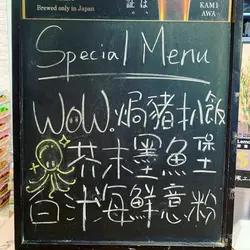 Brewed only in Japan
は、
証。
KAMI
AWA
Special Menu
WOW!焗豬扒飯
芥末墨魚堡
白汁海鮮意粉